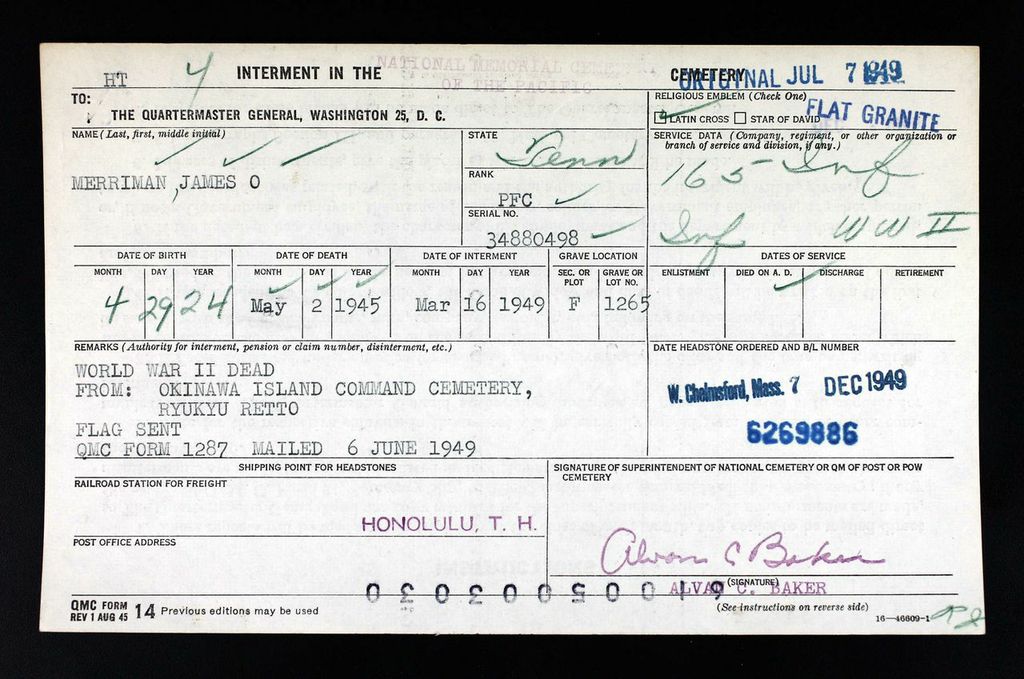 HT 4 INTERMENT IN THE NATIONAL MEMORIAL CEMETERY OF THE PACIFIC CEMETERY ORIGINAL JUL 7 1949
TO:
THE QUARTERMASTER GENERAL, WASHINGTON 25, D. C.
RELIGIOUS EMBLEM (Check One)
LATIN CROSS STAR OF DAVID FLAT GRANITE
NAME (Last, first, middle initial)
MERRIMAN, JAMES O
STATE
Tenn
RANK
PFC
SERIAL NO.
34880498
SERVICE DATA (Company, regiment, or other organization or branch of service and division, if any.)
165 - Inf
Inf WW II
DATE OF BIRTH DATE OF DEATH DATE OF INTERMENT GRAVE LOCATION DATES OF SERVICE
MONTH DAY YEAR MONTH DAY YEAR MONTH DAY YEAR SEC. OR PLOT GRAVE OR LOT NO. ENLISTMENT DIED ON A. D. DISCHARGE RETIREMENT
4 29 24 May 2 1945 Mar 16 1949 F 1265
REMARKS (Authority for interment, pension or claim number, disinterment, etc.)
WORLD WAR II DEAD
FROM: OKINAWA ISLAND COMMAND CEMETERY,
RYUKYU RETTO
FLAG SENT
QMC FORM 1287 MAILED 6 JUNE 1949
DATE HEADSTONE ORDERED AND B/L NUMBER
W. Chelmsford, Mass. 7 DEC 1949
6269886
SHIPPING POINT FOR HEADSTONES
RAILROAD STATION FOR FREIGHT
HONOLULU, T. H.
POST OFFICE ADDRESS
SIGNATURE OF SUPERINTENDENT OF NATIONAL CEMETERY OR QM OF POST OR POW CEMETERY
Alvan C Baker
ALVAN C. BAKER
(SIGNATURE)
(See instructions on reverse side)
QMC FORM
REV 1 AUG 45 14 Previous editions may be used
16—46609-1